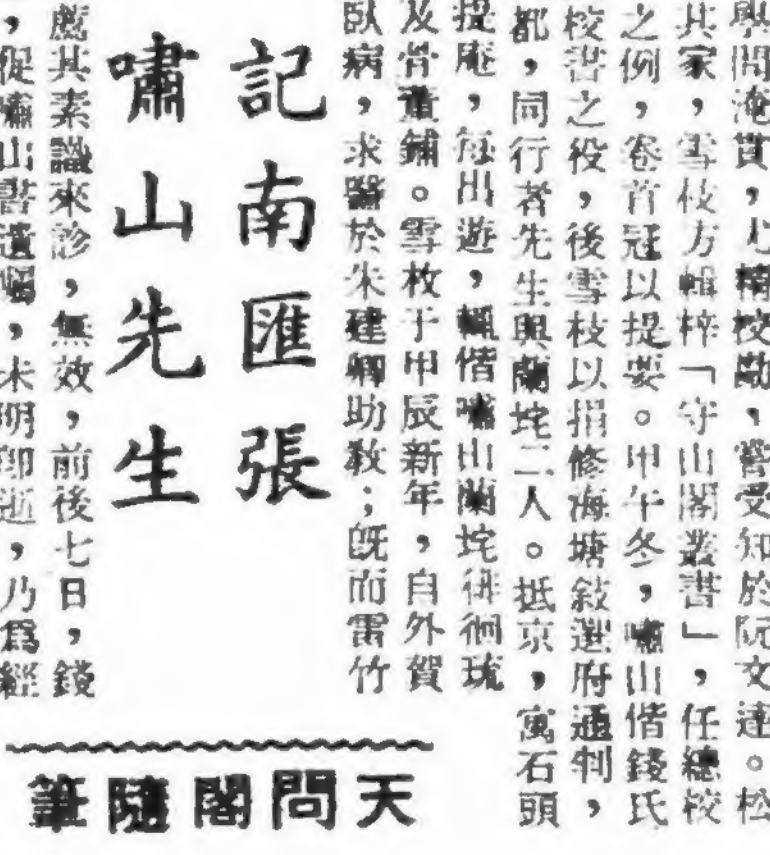 學問淹貫，尤精校勘，嘗受知於阮文達。松
其家，雪枝方輯梓「守山閣叢書」，任總校
之例，卷首冠以提要。甲午冬，嘯山偕錢氏
校書之役，後雪枝以捐修海塘敍選府通判，
都，同行者先生與蘭垞二人。抵京，寓石頭
提庵，每出遊，輒偕嘯山蘭垞徘徊琉
及骨董鋪。雪枚于甲辰新年，自外賀
臥病，求醫於朱建卿助敎；旣而雷竹
記南匯張
嘯山先生
薦其素識來診，無效，前後七日，錢
，促嘯山書遺囑，未明卽逝，乃爲經
天問閣隨筆